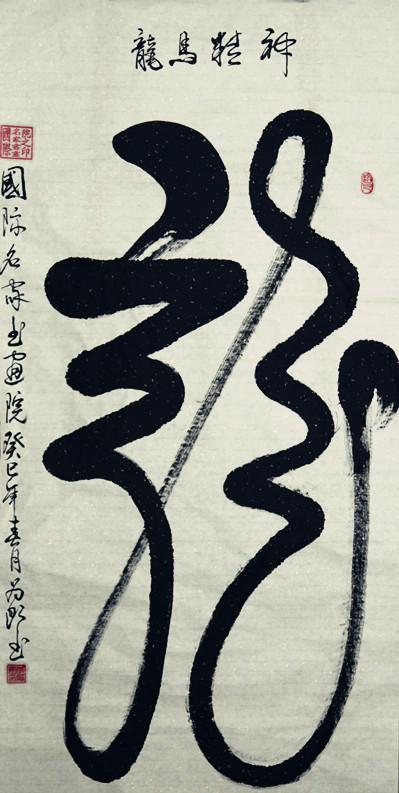 龍馬精神
龍
國际名家书画院癸巳年春月为书